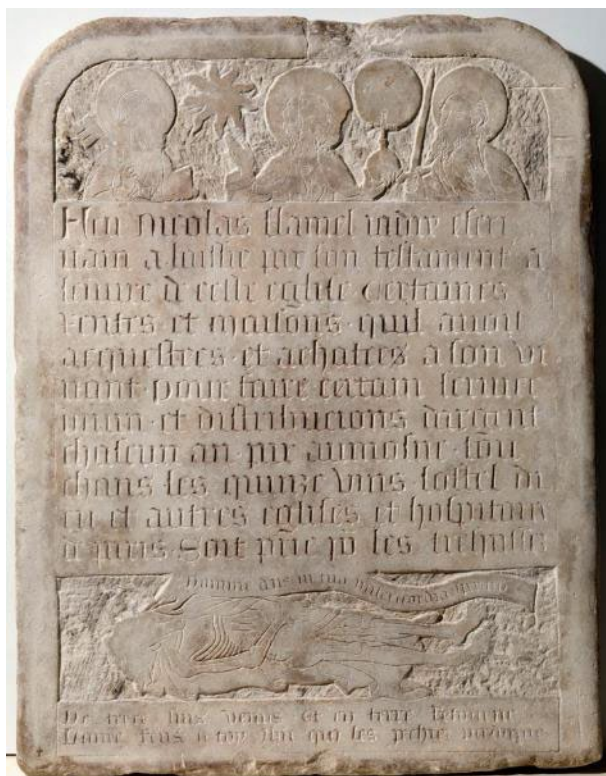 Feu nicolas flamel iadiz escri
uain a laissie par son testament a
leuure de ceste eglise certaines
rentes et maisons quil auoit
acquestees et achatees a son vi
uant pour faire certain seruice
diuin et distribucions dargent
chascun an par aumosne tou
chans les quinze vins lostel di
eu et autres eglises et hospitaux
de paris Soit prie pour les trespassez
Domine deus in tua misericordia speraui
De terre suis venus et en terre retourne
Lame rens a toy ihu qui les pechiez pardonne